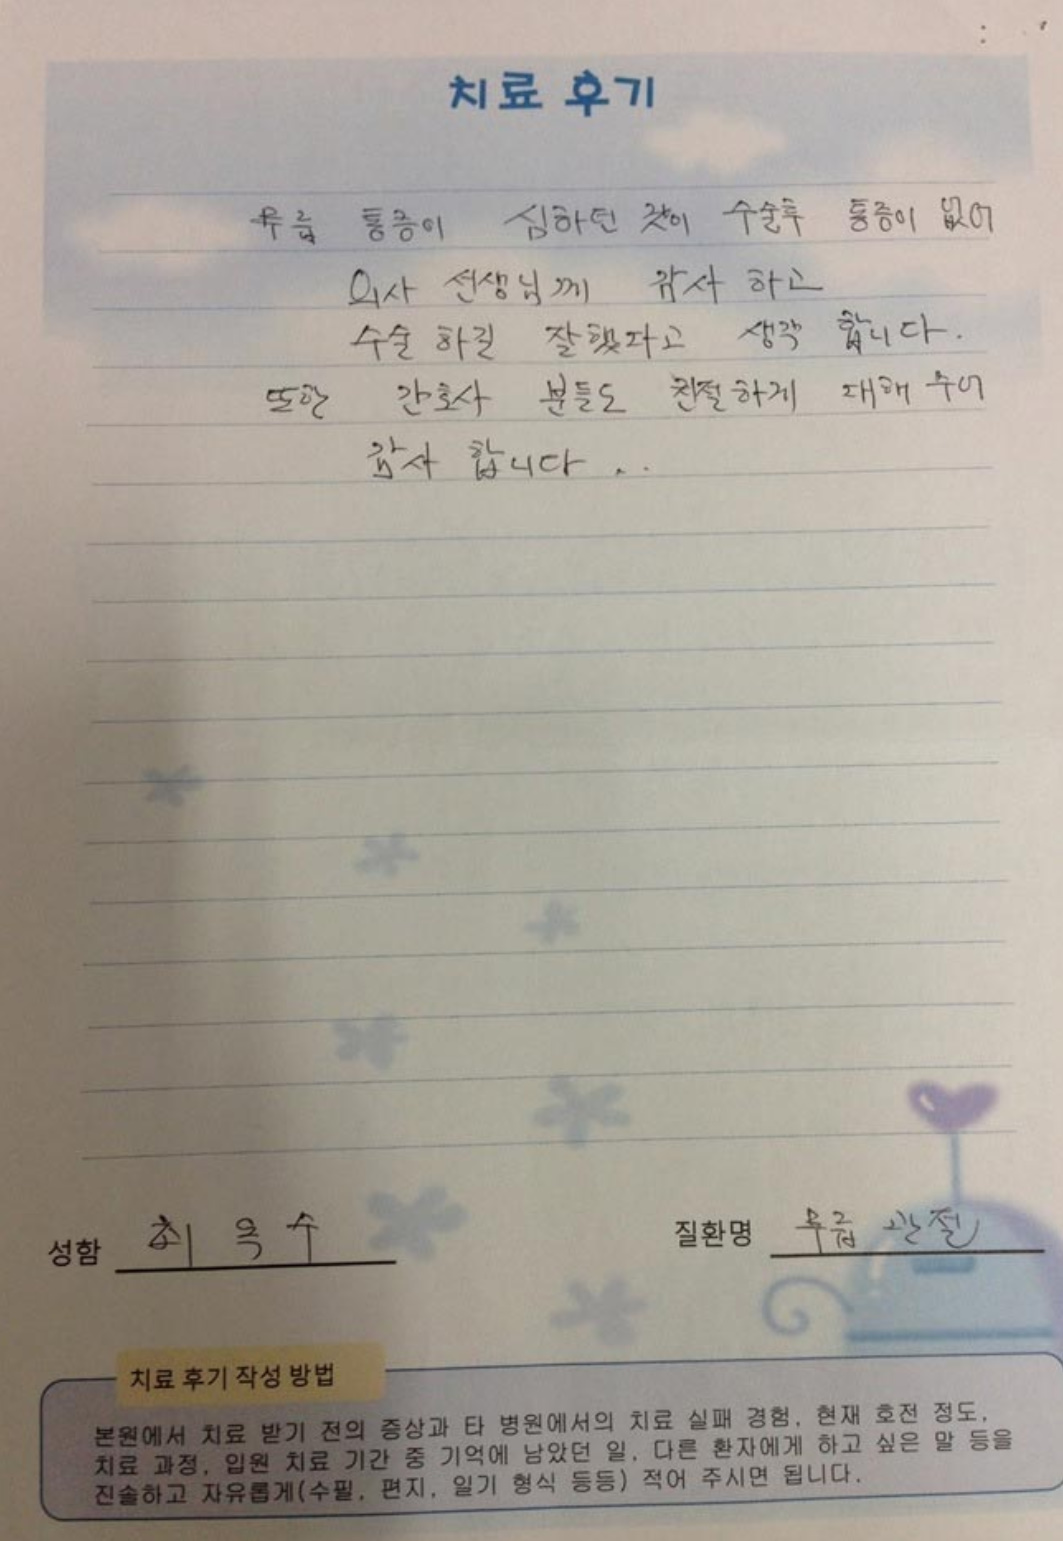 치료 후기
무릎 통증이 심하던 것이 수술후 통증이 없어
의사 선생님께 감사 하고
수술 하길 잘했다고 생각 합니다.
또한 간호사 분들도 친절하게 대해 주어
감사 합니다 ..
성함 최옥수 질환명 무릎 관절
치료 후기 작성 방법
본원에서 치료 받기 전의 증상과 타 병원에서의 치료 실패 경험, 현재 호전 정도,
치료 과정, 입원 치료 기간 중 기억에 남았던 일, 다른 환자에게 하고 싶은 말 등을
진솔하고 자유롭게(수필, 편지, 일기 형식 등등) 적어 주시면 됩니다.